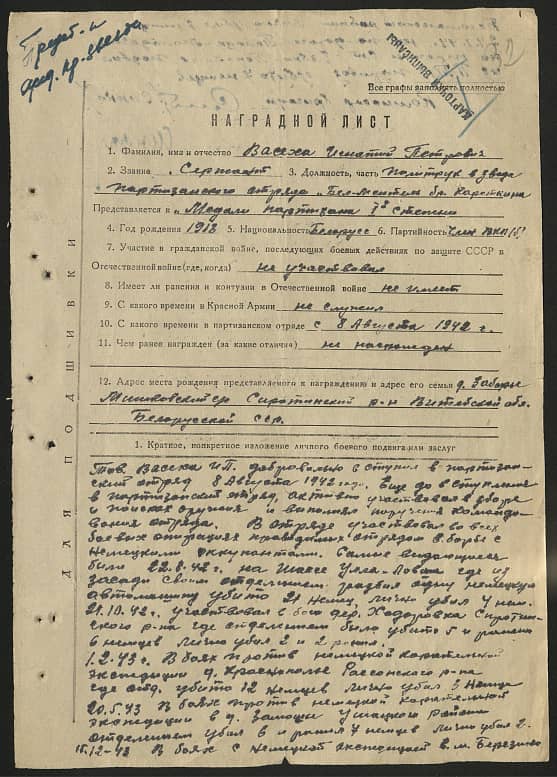 Предст. к
КАРТОЧКА ВЫПИСАНА
Все графы заполнять полностью
НАГРАДНОЙ ЛИСТ
1. Фамилия, имя и отчество Васеха Игнатий Петрович
2. Звание Сержант 3. Должность, часть Политрук взвода
партизанского отряда
Представляется к „Медали партизана I ой степени
4. Год рождения 1913 5. Национальность Белорусс 6. Партийность Член ВКП(б)
7. Участие в гражданской войне, последующих боевых действиях по защите СССР в
Отечественной войне (где, когда) не участвовал
8. Имеет ли ранения и контузии в Отечественной войне не имеет
9. С какого времени в Красной Армии не служил
10. С какого времени в партизанском отряде с 8 Августа 1942 г.
11. Чем ранее награжден (за какие отличия) не награжден
12. Адрес места рождения представляемого к награждению и адрес его семьи д. Заборье
Сиротинский р-н Витебской обл.
Белорусской сср.
1. Краткое, конкретное изложение личного боевого подвига или заслуг
Тов. Васеха И.П. добровольно вступил в партизан-
ский отряд 8 Августа 1942 года. Еще до вступления
в партизанский отряд, активно участвовал в сборе
и поиске оружия и выполнял поручения командо-
вания отряда. В отряде участвовал во всех
боевых операциях проводимых отрядом в борьбе с
немецкими оккупантами. Самые выдающиеся
были 22.8.42г. на шоссе Улла- где из
засады своим отделением разбил одну немецкую
автомашину убито 21 немец, лично убил 4 нем.
21.10.42г. участвовал в бою дер. Ходоровка Сиротин-
ского р-на где отделением было убито 5 и ранено
6 немцев лично убил 2 и 2 ранил.
1.2.43г. В боях против немецкой карательной
экспедиции д. Краснополье Россонского р-на
где отд. убито 12 немцев лично убил 3 немца
20.5.43 В боях против немецкой карательной
экспедиции в д. Ушацкого района
отделением убил 6 и ранил 4 немцев лично убил 2.
15.12-43 В боях с немецкой экспедицией в м. Березино
ДЛЯ ПОДШИВКИ